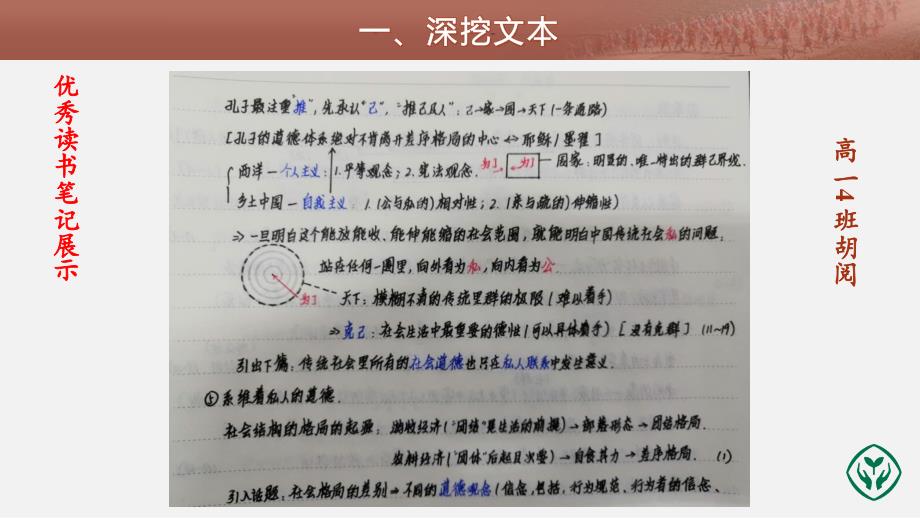 一、深挖文本
优秀读书笔记展示
孔子最注重“推”,先承认“己”,“推己及人”:己→家→国→天下(一条通路)
[孔子的道德体系绝对不肯离开差序格局的中心 ⇔ 耶稣/墨翟]
西洋—个人主义:1.平等观念;2.宪法观念. 国家:明显的、唯一特出的群己界线.
乡土中国—自我主义:1.(公与私的)相对性;2.(亲与疏的)伸缩性)
⇒一旦明白这个能放能收、能伸能缩的社会范围,就能明白中国传统社会私的问题:
站在任何一圈里,向外看为私,向内看为公.
天下:模糊不清的传统里群的极限(难以着手)
⇒克己:社会生活中最重要的德性(可以具体着手)[没有克群](11~19)
引出下篇:传统社会里所有的社会道德也只在私人联系中发生意义.
⑤系维着私人的道德.
社会结构的格局的起源:游牧经济(“团结”是生活的前提)→部落形态→团结格局.
农耕经济(“团体”后起且次要)→自食其力→差序格局. (1)
引入话题:社会格局的差别→不同的道德观念(信念,包括:行为规范、行为者的信念、
高一4班胡阅